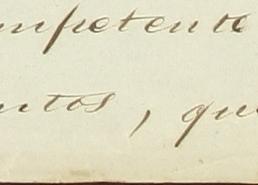 mpetente
ntos, que